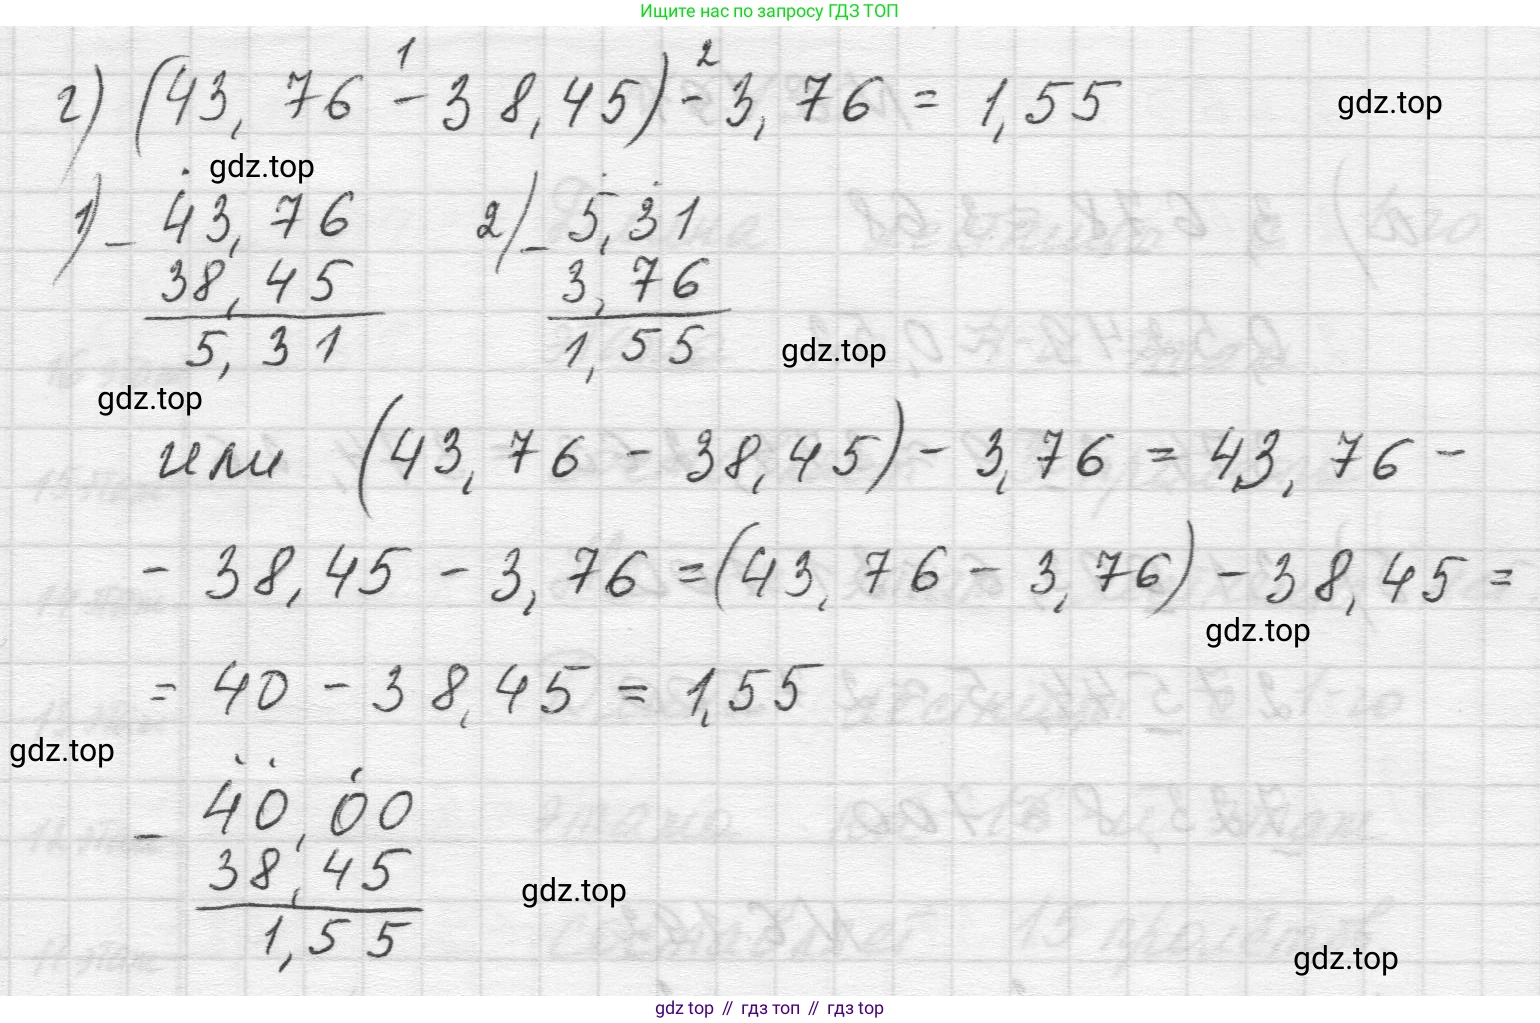 Ищите нас по запросу ГДЗ ТОП
г) (43,76 - 38,45) - 3,76 = 1,55
1 2
gdz.top
gdz.top
1) - 43,76
38,45
5,31
2) - 5,31
3,76
1,55
gdz.top
gdz.top
или (43,76 - 38,45) - 3,76 = 43,76 -
- 38,45 - 3,76 = (43,76 - 3,76) - 38,45 =
gdz.top
= 40 - 38,45 = 1,55
gdz.top
- 40,00
38,45
1,55
gdz.top
gdz.top
gdz top // гдз топ // гдз top